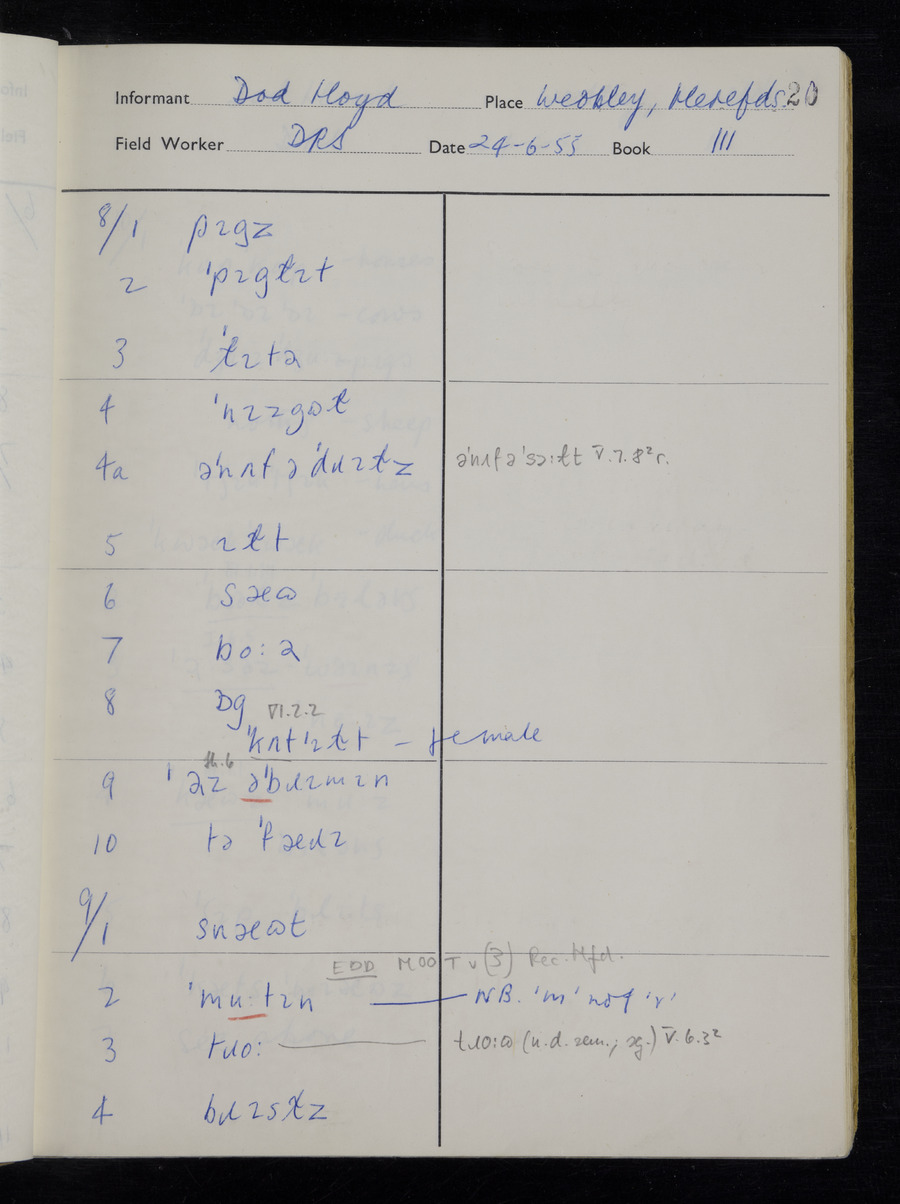 Informant Dod Lloyd Place Weobley, Herefds. 20
Field Worker DRS Date 24-6-55 Book III
8/1 pɪgz
2 ˈpɪgɫɪt
3 ˈɫɪtə
4 ˈnɪzgɷɫ
4a əˈnʌf əˈdɹɪɫz əˈnʌf ə ˈsə:ɫt V.7.8²r.
5 ɪɫt
6 sæɷ
7 bo:ə
8 ɒg VI.2.2
ˈkʌtˈɪɫt – female
th.6
9 ˈəɪz əˈbɹɪmɪn
10 tə ˈfæɹɪ
9/1 snæɷt
EDD MOOT v (3) Rec. Hfd.
2 ˈmu:tɪn NB. 'm' not 'r'
3 tɹo: tɹo:ɷ (n.d. rem.; sg.) V.6.3²
4 bɹɪsɫz